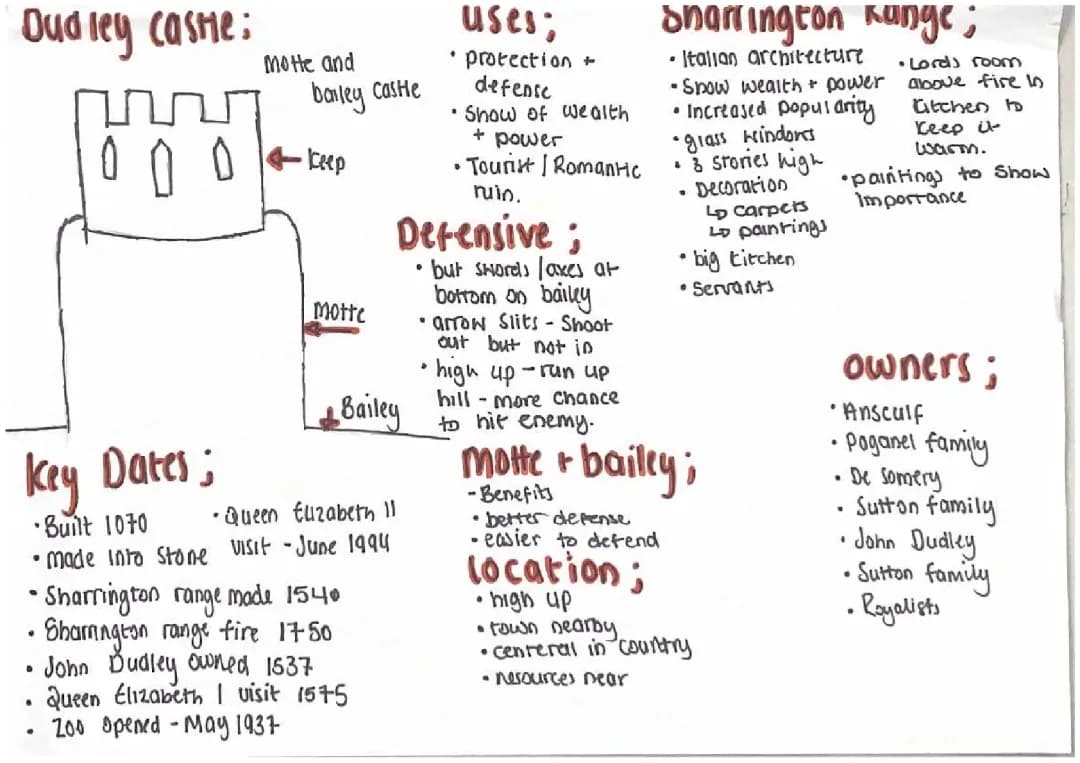 Dudley Castle;
Motte and
bailey Castle
Keep
Motte
Bailey
uses;
• protection +
defense
• Show of wealth
+ power
• Tourist / Romantic
ruin.
Defensive;
• but swords / axes at
bottom on bailey
• arrow slits - shoot
out but not in
• high up - run up
hill - more chance
to hit enemy.
Motte + bailey;
- Benefits
• better defense
• easier to defend
location;
• high up
• town nearby
• centeral in country
• resources near
Sharrington Range;
• Italian architecture
• Show wealth + power
• Increased popularity
• glass windows
• 3 stories high
• Decoration
↳ carpets
↳ paintings
• big kitchen
• Servants
• Lords room
above fire in
kitchen to
keep it
warm.
• paintings to show
importance
owners;
• Ansculf
• Paganel family
• De Somery
• Sutton family
• John Dudley
• Sutton family
• Royalists
Key Dates;
• Built 1070
• made into stone
• Queen Elizabeth II
visit - June 1994
• Sharrington range made 1540
• Sharrington range fire 1750
• John Dudley owned 1537
• Queen Elizabeth I visit 1575
• Zoo opened - May 1937